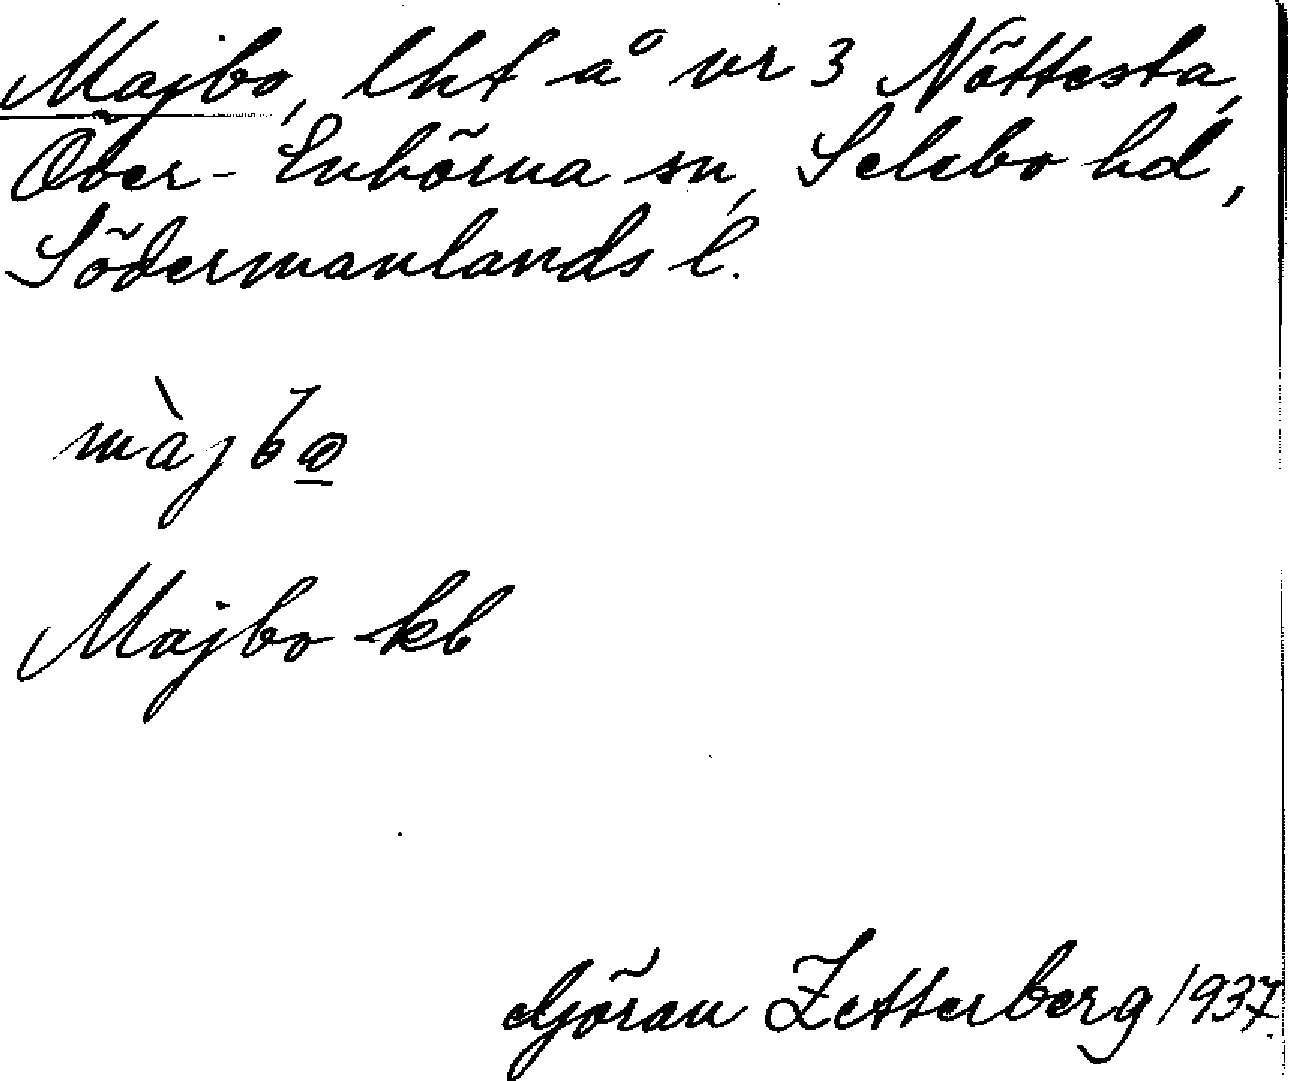 Majbo, lht å nr 3 Nöttesta,
Över-Enhörna sn, Selebo hd,
Södermanlands l.
màjbo̲
Majbo kb
Göran Zetterberg 1937.